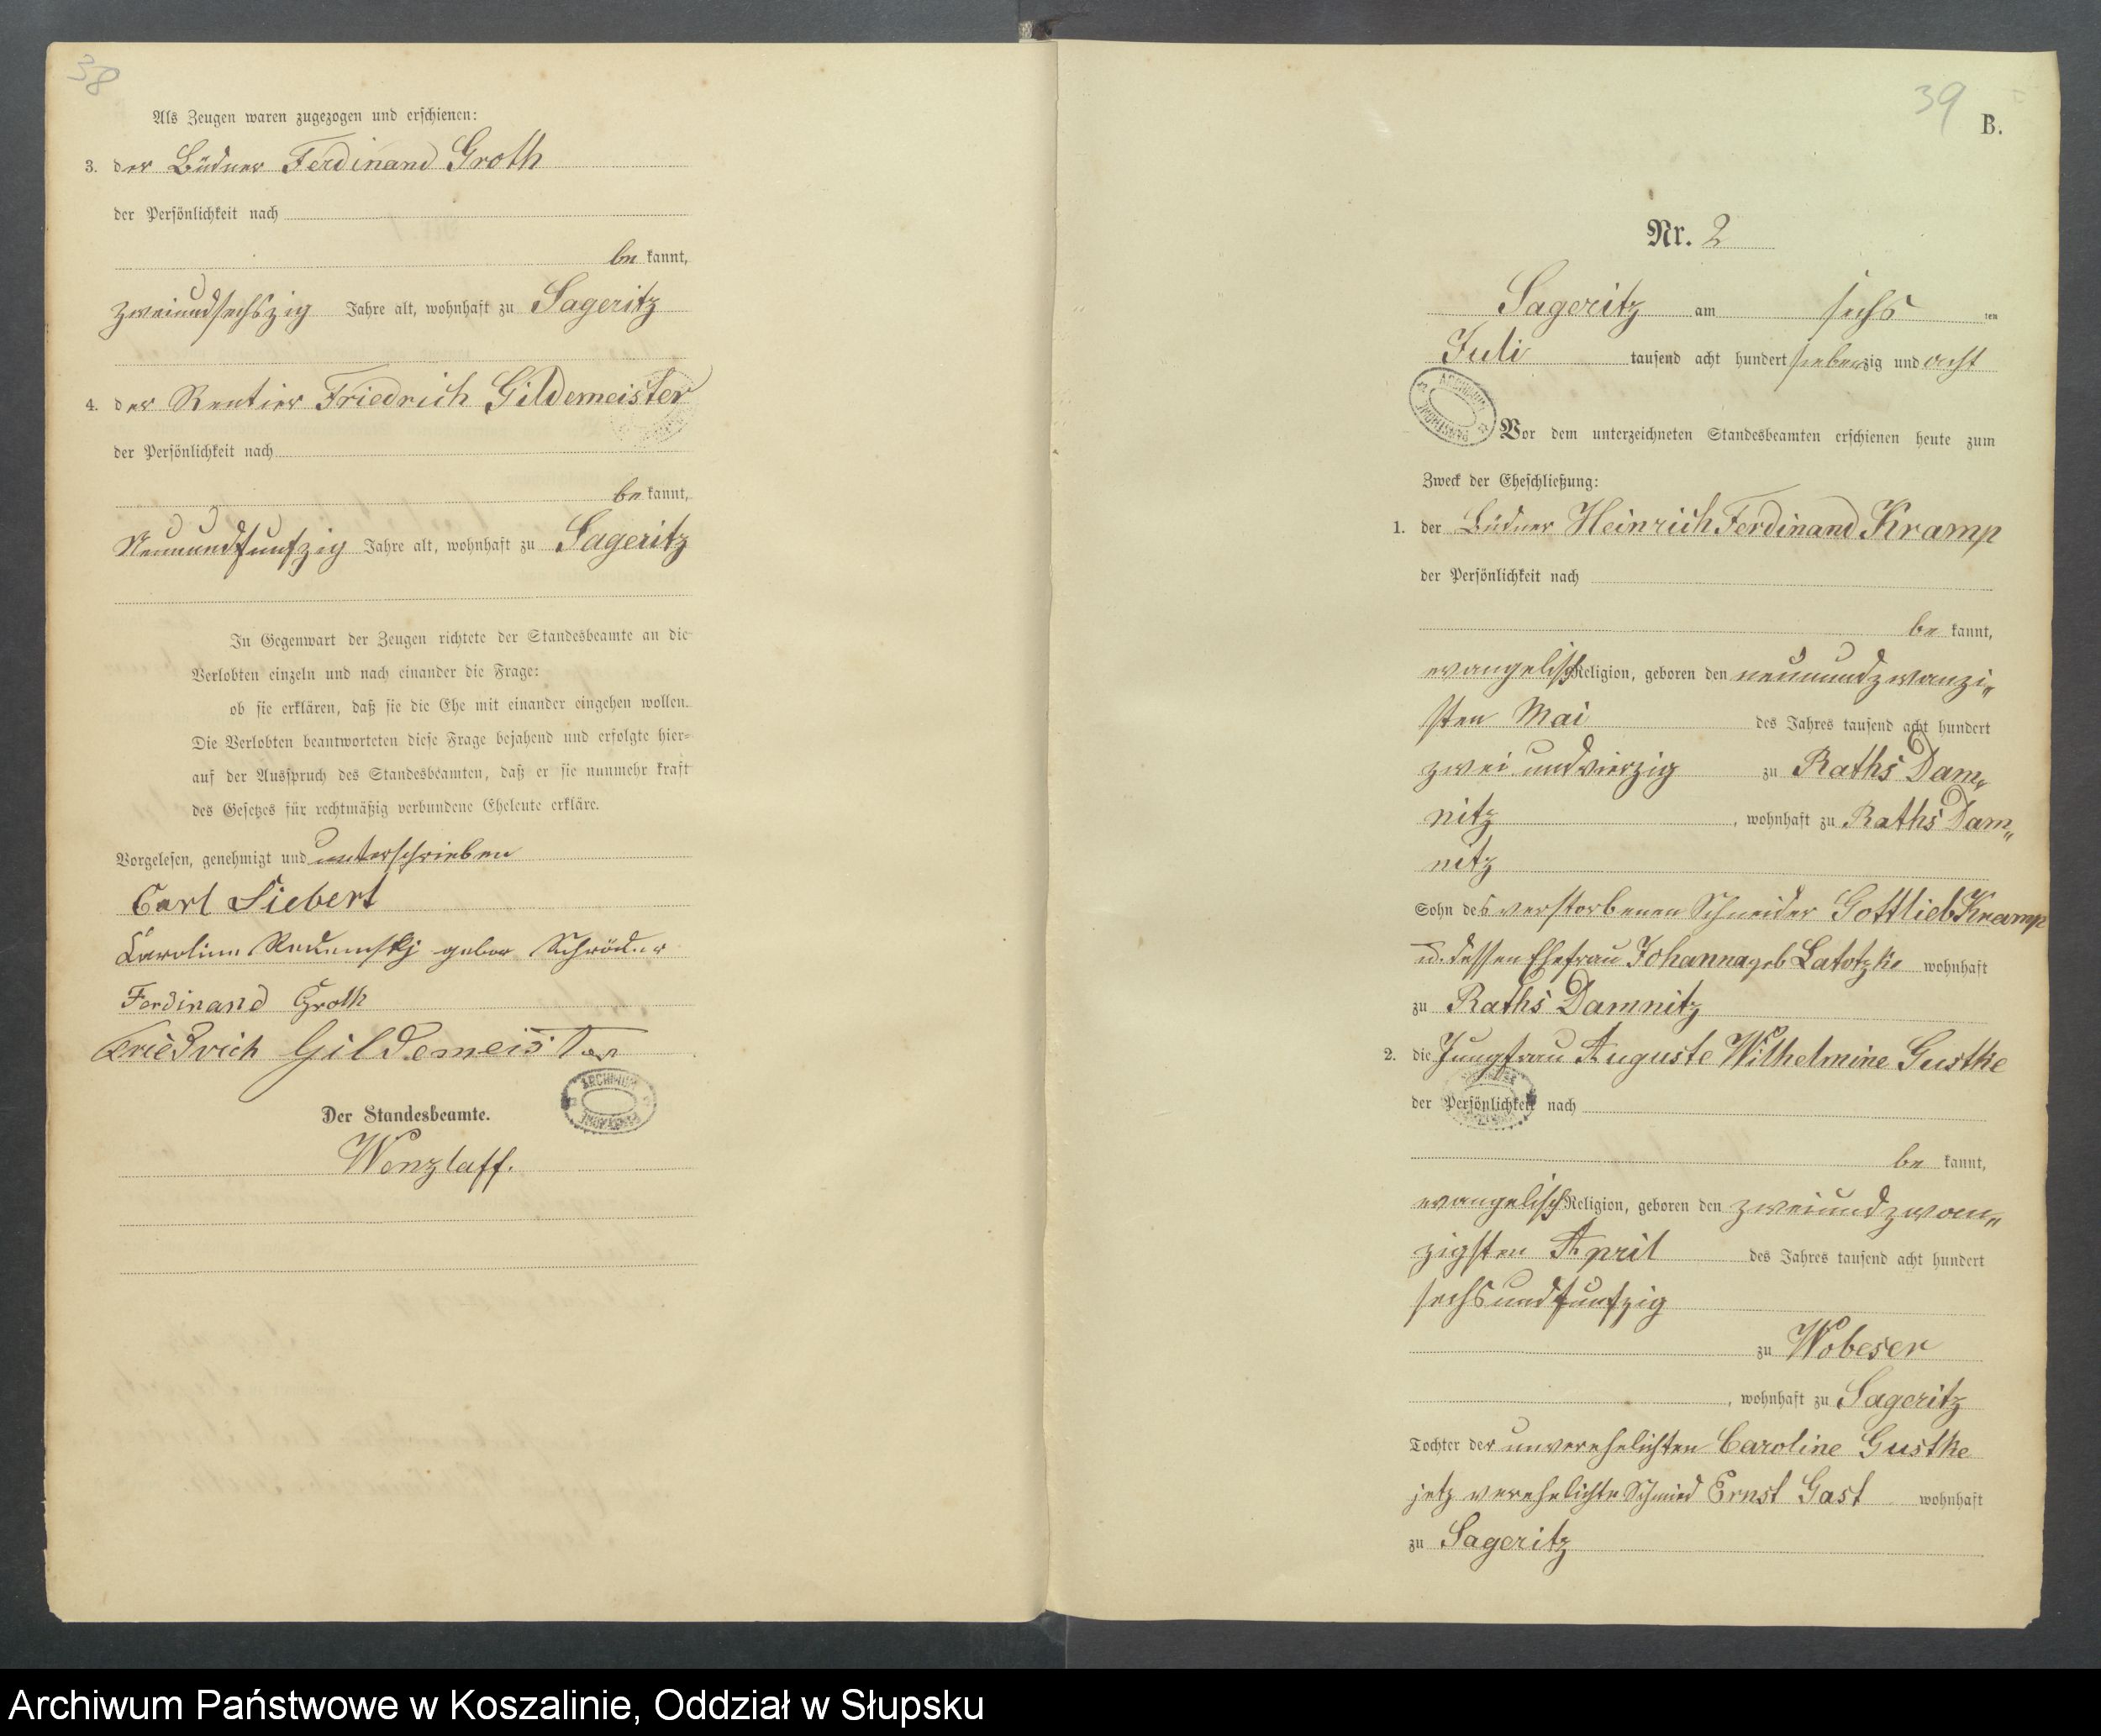 38
Als Zeugen waren zugezogen und erschienen:
3. der Büdner Ferdinand Groth
der Persönlichkeit nach
be kannt,
zweiundsechszig Jahre alt, wohnhaft zu Sageritz
4. der Rentier Friedrich Gildemeister
der Persönlichkeit nach
be kannt,
Neunundfunfzig Jahre alt, wohnhaft zu Sageritz
In Gegenwart der Zeugen richtete der Standesbeamte an die
Verlobten einzeln und nach einander die Frage:
ob sie erklären, daß sie die Ehe mit einander eingehen wollen.
Die Verlobten beantworteten diese Frage bejahend und erfolgte hier-
auf der Ausspruch des Standesbeamten, daß er sie nunmehr kraft
des Gesetzes für rechtmäßig verbundene Eheleute erkläre.
Vorgelesen, genehmigt und unterschrieben
Carl Siebert
Karoline gebor Schröder
Ferdinand Groth
Friedrich Gildemeister
ARCHIWUM
Der Standesbeamte.
Wenzlaff.
39
B.
Nr. 2
Sageritz am sechs ten
Juli tausend acht hundert siebenzig und acht
ARCHIWUM
Vor dem unterzeichneten Standesbeamten erschienen heute zum
Zweck der Eheschließung:
1. der Büdner Heinrich Ferdinand Kramp
der Persönlichkeit nach
be kannt,
evangelisch Religion, geboren den neunundzwanzi„
sten Mai des Jahres tausend acht hundert
zwei undvierzig zu Raths Dam„
nitz, wohnhaft zu Raths Dam„
nitz
Sohn des verstorbenen Schneider Gottlieb Kramp
u. dessen Ehefrau Johanna geb Latotzke wohnhaft
zu Raths Damnitz
2. die Jungfrau Auguste Wilhelmine Gustke
der Persönlichkeit nach
be kannt,
evangelisch Religion, geboren den zweiundzwan„
zigsten April des Jahres tausend acht hundert
sechsundfunfzig
zu Wobeser
, wohnhaft zu Sageritz
Tochter der unverehelichten Caroline Gustke
jetz verehelichte Schmied Ernst Gast wohnhaft
zu Sageritz
Archiwum Państwowe w Koszalinie, Oddział w Słupsku